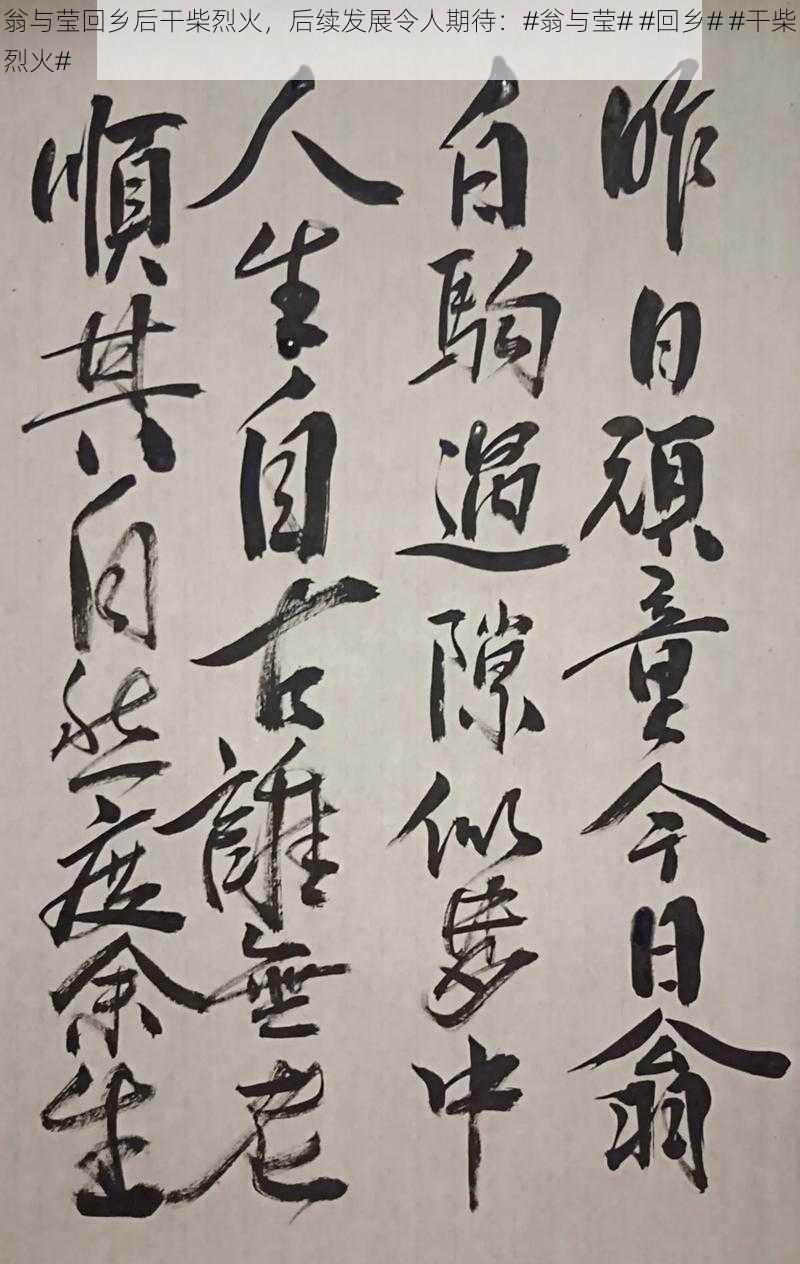 翁与莹回乡后干柴烈火，后续发展令人期待：#翁与莹# #回乡# #干柴
烈火#
昨日頑童今日翁
白駒過隙似夢中
人生自古誰無老
順其自然度余生